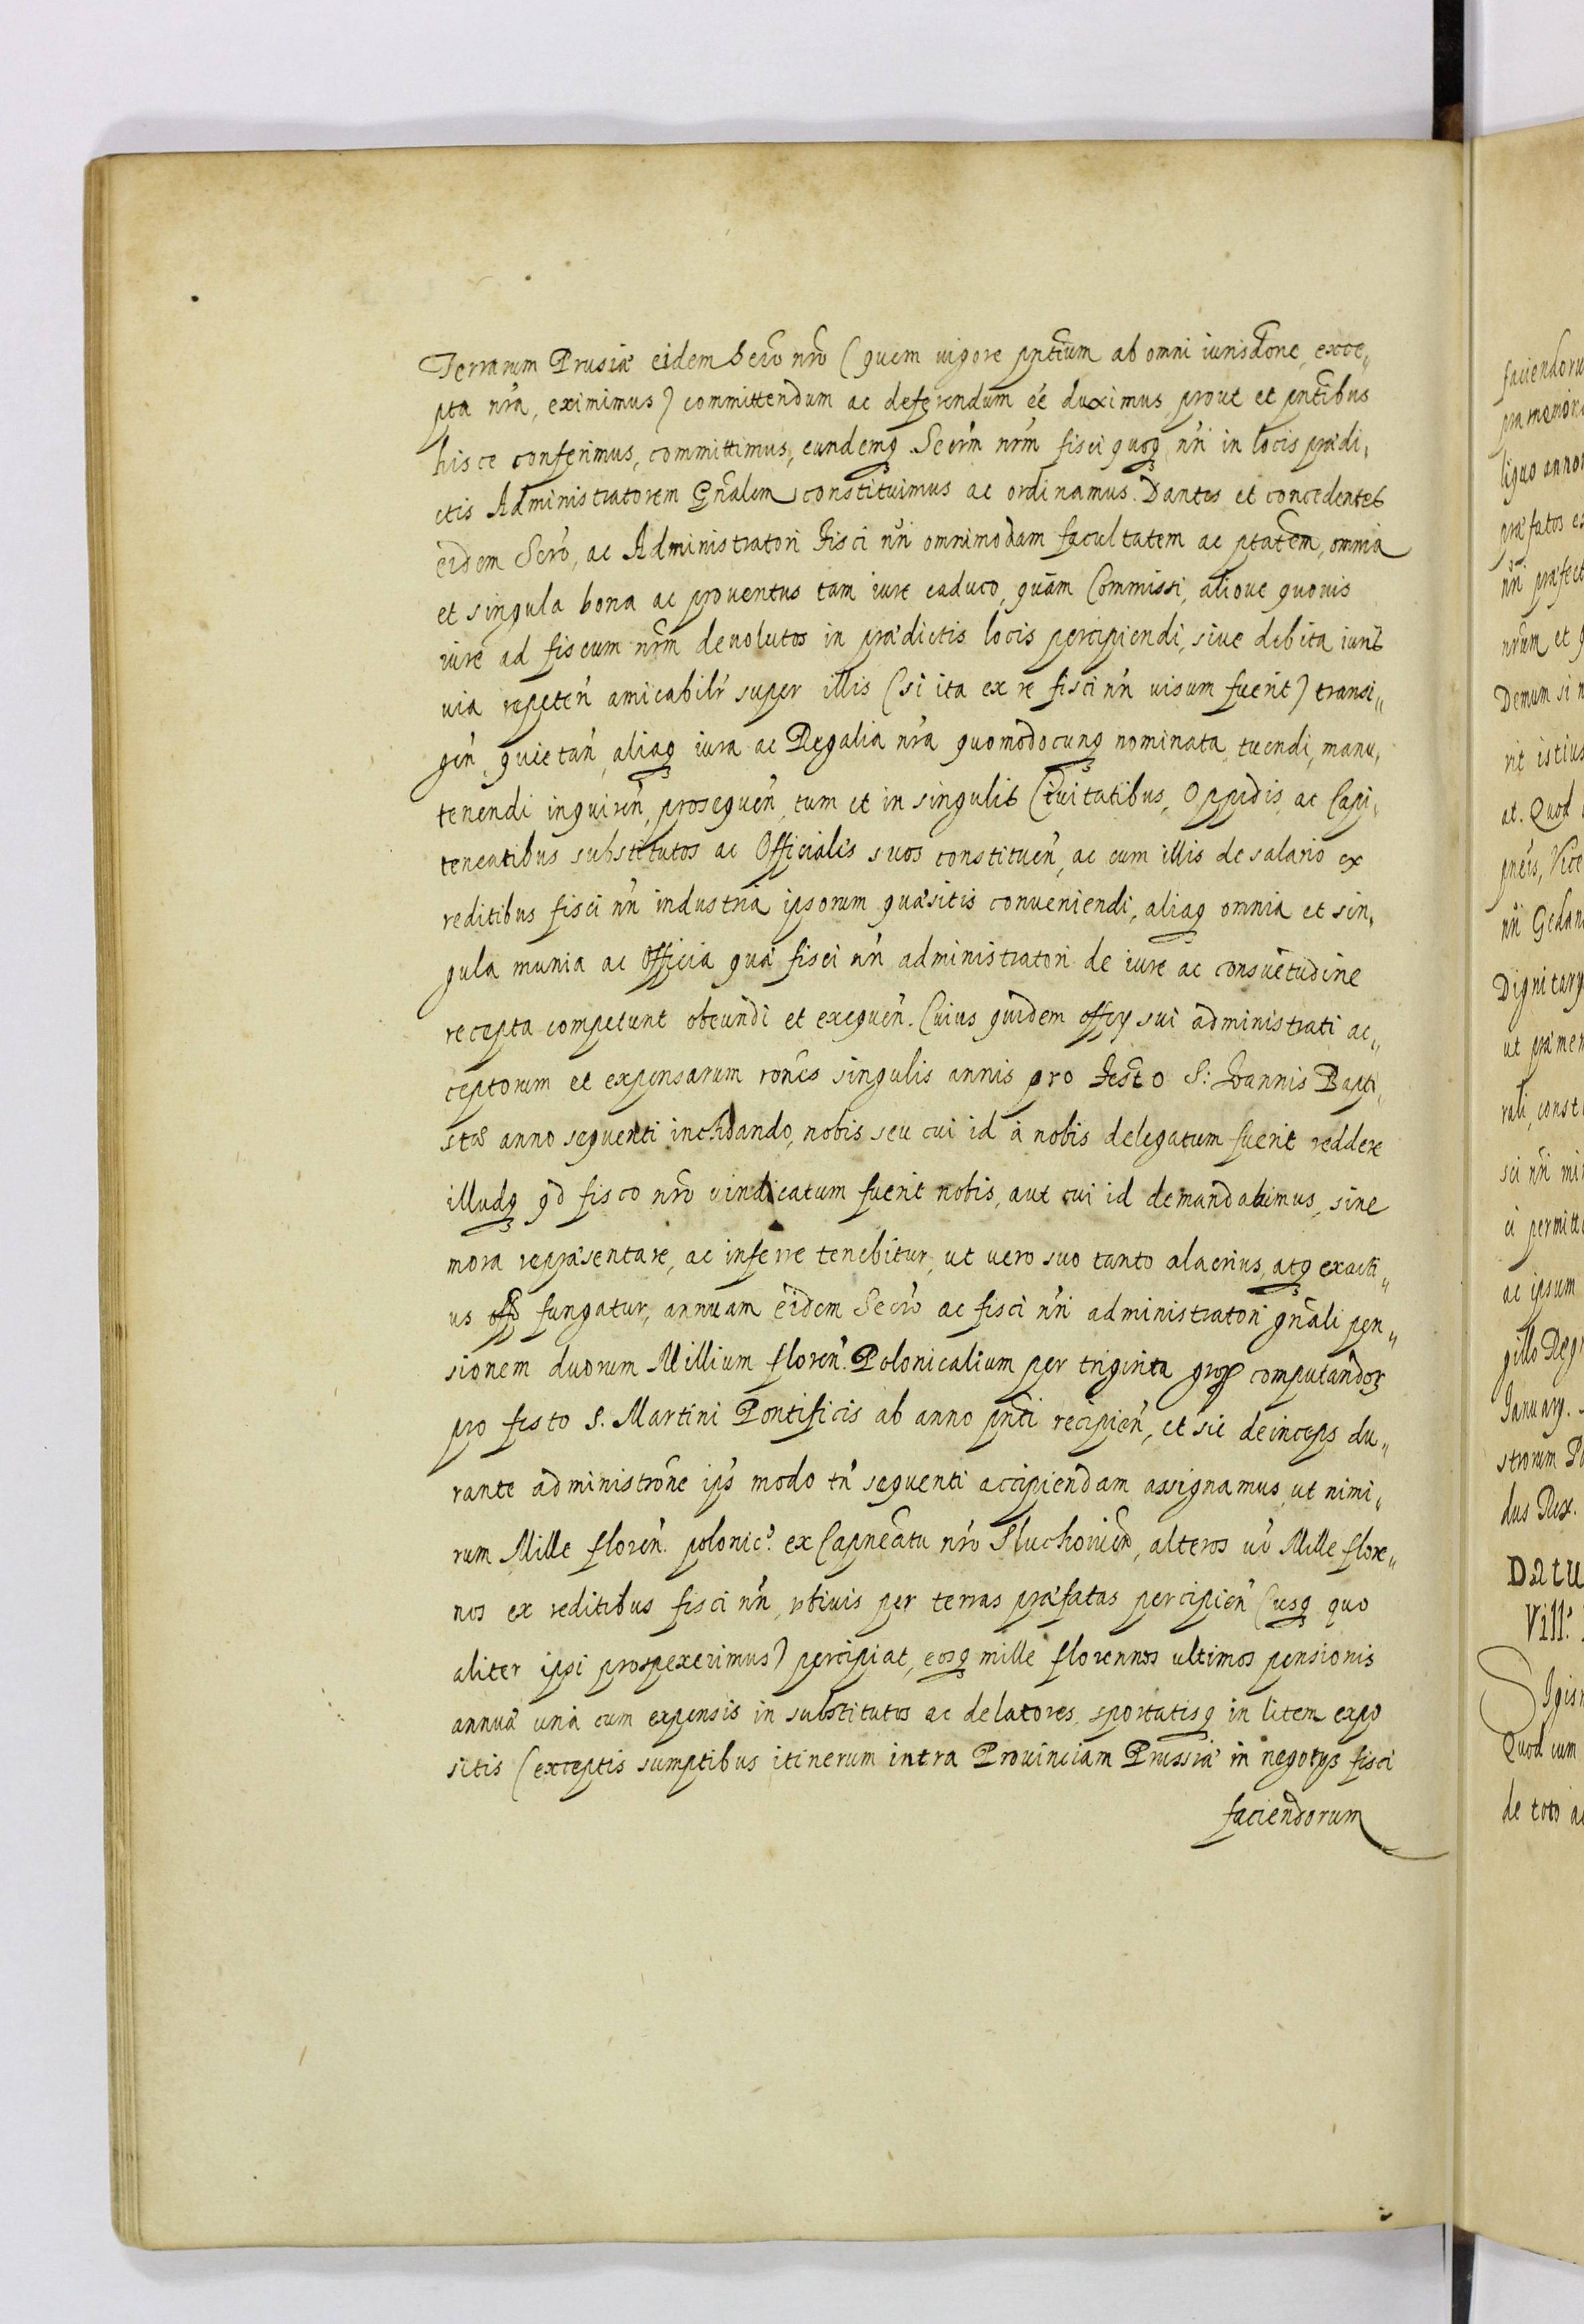 Terrarum Prusiæ eidem Secro nr̃o (quem uigore pntium ab omni iurisdone, exce„
pta nr̃a, eximimus) committendum ac deferendum eẽ duximus prout et pntibus
hisce conferimus, committimus, eundemq Secrm nrm fisci quoq nr̃i in locis prædi„
ctis Administratorem Gnalem constituimus ac ordinamus. Dantes et concedentes
eidem Secro, ac Administratori Fisci nr̃i omnimodam facultatem ac ptatem, omnia
et singula bona ac prouentus tam iure caduco, quàm Commissi, alioue quouis
iure ad fiscum nrm deuolutos in prædictis locis percipiendi, siue debita iuris
uia repeten̄ amicabilr̃ super illis (si ita ex re fisci nr̃i uisum fuerit) transi„
gen̄, quietan̄, aliaq iura ac Regalia nr̃a quomodocunq nominata tuendi, manu„
tenendi inquiren̄, prosequen̄, tum et in singulis Ciuitatibus, Oppidis, ac Capi„
teneatibus substitutos ac Officiales suos constituen̄, ac cum illis de salario ex
reditibus fisci nr̃i industria ipsorum quæsitis conueniendi, aliaq omnia et sin„
gula munia ac Officia quæ fisci nr̃i administratori de iure ac consuetudine
recepta competunt obeundi et exequen̄. Cuius quidem officy sui administrati ac„
ceptorum et expensarum rones singulis annis pro Festo S: Ioannis Bapti„
stæ anno sequenti inchoando, nobis seu cui id à nobis delegatum fuerit reddere
illudq qd fisco nr̃o uindicatum fuerit nobis, aut cui id demandabimus, sine
mora repræsentare, ac inferre tenebitur, ut uero suo tanto alacrius, atq exacti„
us offo fungatur, annuam eidem Secro ac fisci nr̃i administratori gnali pen„
sionem duorum Millium floren̄. Polonicalium per triginta gros computandor
pro festo S. Martini Pontificis ab anno pnti recipien̄, et sic deinceps du„
rante administrone ips modo tn̄ sequenti accipiendam assignamus, ut nimi„
rum Mille floren̄. polonic. ex Capneatu nr̃o Sluchouien̄, alteros uo Mille flore„
nos ex reditibus fisci nr̃i, ubiuis per terras præfatas percipien̄ (usq quo
aliter ipsi prospexerimus) percipiat, eosq mille florennos ultimos pensionis
annuæ unà cum expensis in substitutos ac delatores, sportutisq in litem expo
sitis (exceptis sumptibus itinerum intra Prouinciam Prussiæ in negotys fisci
faciendorum